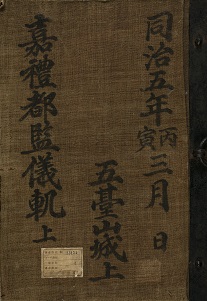 同治五年丙寅三月 日
五臺山城上
嘉禮都監儀軌 上